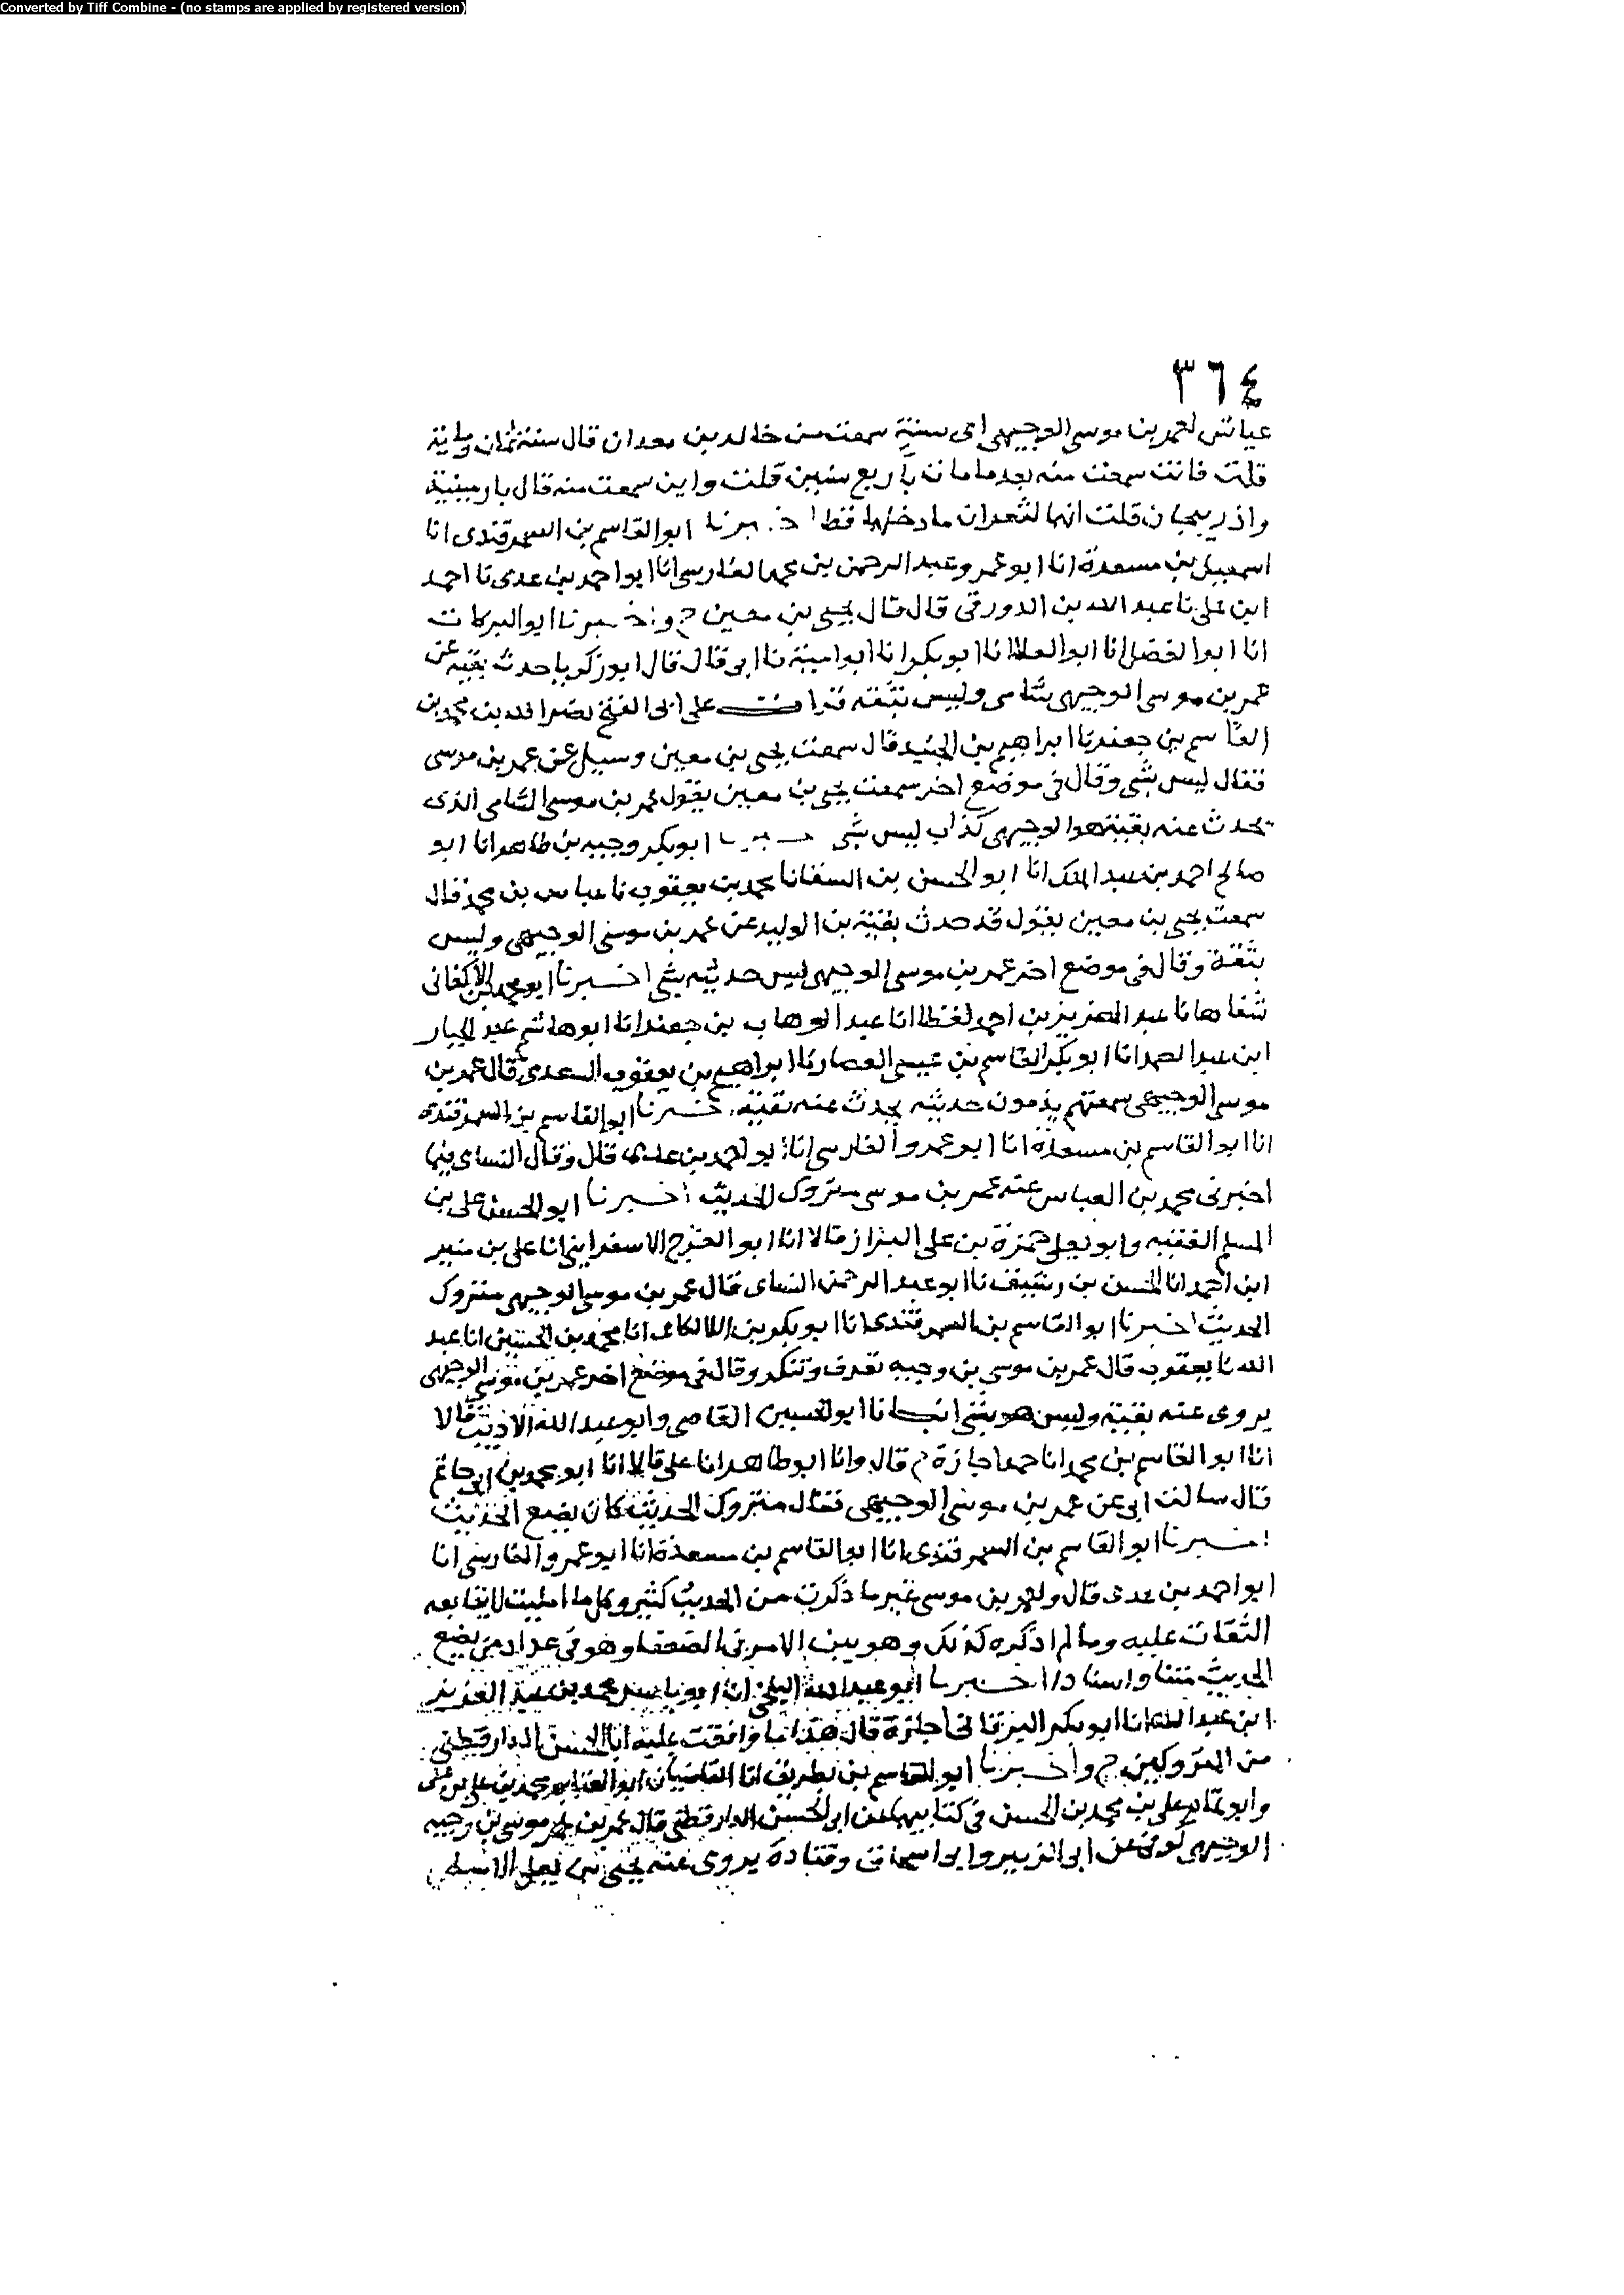 Converted by Tiff Combine - (no stamps are applied by registered version)
٣٦٤
عياش لعمر بن موسى الوجيهى اى سنة سمعت من خالد بن معدان قال سنة ثمان ومايه
قلت فانت سمعت منه بعدما مات باربع سنين قلت واين سمعت منه قال بارمينية
واذربيجان قلت انهما لثغران ما دخلهما قط اخبرنا ابو القاسم بن السمرقندى انا
اسمعيل بن مسعدة انا ابو عمرو عبد الرحمن بن محمد الفارسى انا ابو احمد بن عدى نا احمد
ابن على نا عبد الله بن الدورقى قال قال يحيى بن معين ح واخبرنا ابو البركات
انا ابو الفضل انا ابو العلا انا ابو بكر انا ابو امية نا ابى قال قال ابو زكريا حدث بقية عن
عمر بن موسى الوجيهى شامى وليس بثقه قرات على ابى الفتح نصر الله بن محمد بن
القاسم بن جعفر نا ابراهيم بن الجنيد قال سمعت يحيى بن معين وسيل عن عمر بن موسى
فقال ليس بشى وقال فى موضع اخر سمعت يحيى بن معين يقول عمر بن موسى الشامى الذى
يحدث عنه بقية هو الوجيهى كذاب ليس بشى اخبرنا ابو بكر وجيه بن طاهر انا ابو
صالح احمد بن عبد الملك انا ابو الحسن بن السقا نا محمد بن يعقوب نا عباس بن محمد قال
سمعت يحيى بن معين يقول قد حدث بقية بن الوليد عن عمر بن موسى الوجيهى وليس
بثقة وقال فى موضع اخر عمر بن موسى الوجيهى ليس حديثه بشى اخبرنا ابو محمد بن الاكفانى
شفاها نا عبد العزيز بن احمد لفظا انا عبد الوهاب بن جعفر انا ابو هاشم عبد الجبار
ابن عبد الصمد انا ابو بكر القاسم بن عيسى العصار نا ابراهيم بن يعقوب السعدى قال عمر بن
موسى الوجيهى سمعتهم يذمون حديثه يحدث عنه بقية اخبرنا ابو القاسم بن السمرقندى
انا ابو القاسم بن مسعدة انا ابو عمرو الفارسى انا ابو احمد بن عدى قال وقال النساى فيما
اخبرنى محمد بن العباس عنه عمر بن موسى متروك الحديث اخبرنا ابو الحسن على بن
المسلم الفقيه وابو يعلى حمزة بن على البزاز قالا انا ابو الفرج الاسفراينى انا على بن منير
ابن احمد انا الحسن بن رشيق نا ابو عبد الرحمن النساى قال عمر بن موسى الوجيهى متروك
الحديث اخبرنا ابو القاسم بن السمرقندى انا ابو بكر بن اللالكاى انا محمد بن الحسين انا عبد
الله نا يعقوب قال عمر بن موسى بن وجيه تعرف وتنكر وقال فى موضع اخر عمر بن موسى الوجيهى
يروى عنه بقية وليس هو بشى انبانا ابو الحسين القاضى وابو عبد الله الاديب قالا
انا ابو القاسم بن محمد انا حمد اجازة ح قال وانا ابو طاهر انا على قالا انا ابو محمد بن ابى حاتم
قال سالت ابى عن عمر بن موسى الوجيهى فقال متروك الحديث كان يضع الحديث
اخبرنا ابو القاسم بن السمرقندى انا ابو القاسم بن مسعدة انا ابو عمرو الفارسى انا
ابو احمد بن عدى قال ولعمر بن موسى غير ما ذكرت من الحديث كثير وكل ما امليت لا يتابعه
الثقات عليه وما لم اذكره كذلك وهو بين الامر فى الضعفا وهو فى عداد من يضع
الحديث متنا واسنادا اخبرنا ابو عبد الله البلخى انا ابو ياسر محمد بن عبد العزيز
ابن عبد الله انا ابو بكر البرقانى اجازة قال هذا ما وافقت عليه ابا الحسن الدارقطنى
من المتروكين ح واخبرنا ابو القاسم بن بطريق انا القاضيان ابو الغنايم محمد بن على بن على
وابو تمام على بن محمد بن الحسن فى كتابيهما عن ابى الحسن الدارقطنى قال عمر بن موسى بن وجيه
الوجيهى كوفى عن ابى الزبير وابى اسحاق وقتادة يروى عنه يحيى بن يعلى الاسلمى